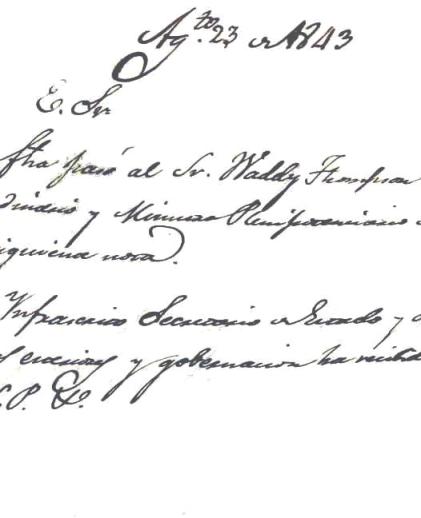 Ag.to 23 de 1843
E. Sr.
fha pasó al Sr. Waddy Thompson
y Ministro Plenipotenciario
siguiente nota.
Ynfrascrito Secretario de Estado y
y gobernacion ha recibid
P. &c.